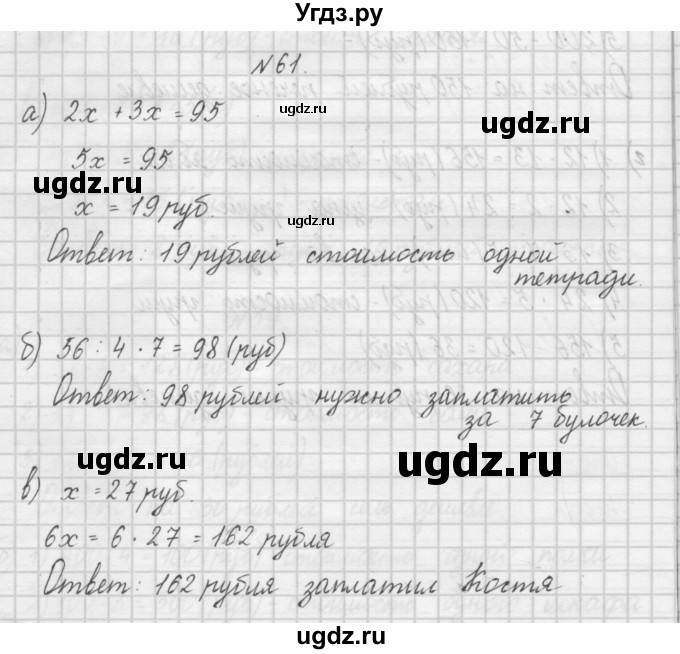 Угдз.ру
№61.
а) 2x + 3x = 95
5x = 95
x = 19 руб.
Ответ: 19 рублей стоимость одной
тетради.
б) 56 : 4 · 7 = 98 (руб)
Ответ: 98 рублей нужно заплатить
за 7 булочек.
в) x = 27 руб.
6x = 6 · 27 = 162 рубля
Ответ: 162 рубля заплатил Костя
ugdz.ru
ugdz.ru
ugdz.ru
ugdz.ru
ugdz.ru
ugdz.ru
ugdz.ru
ugdz.ru
ugdz.ru